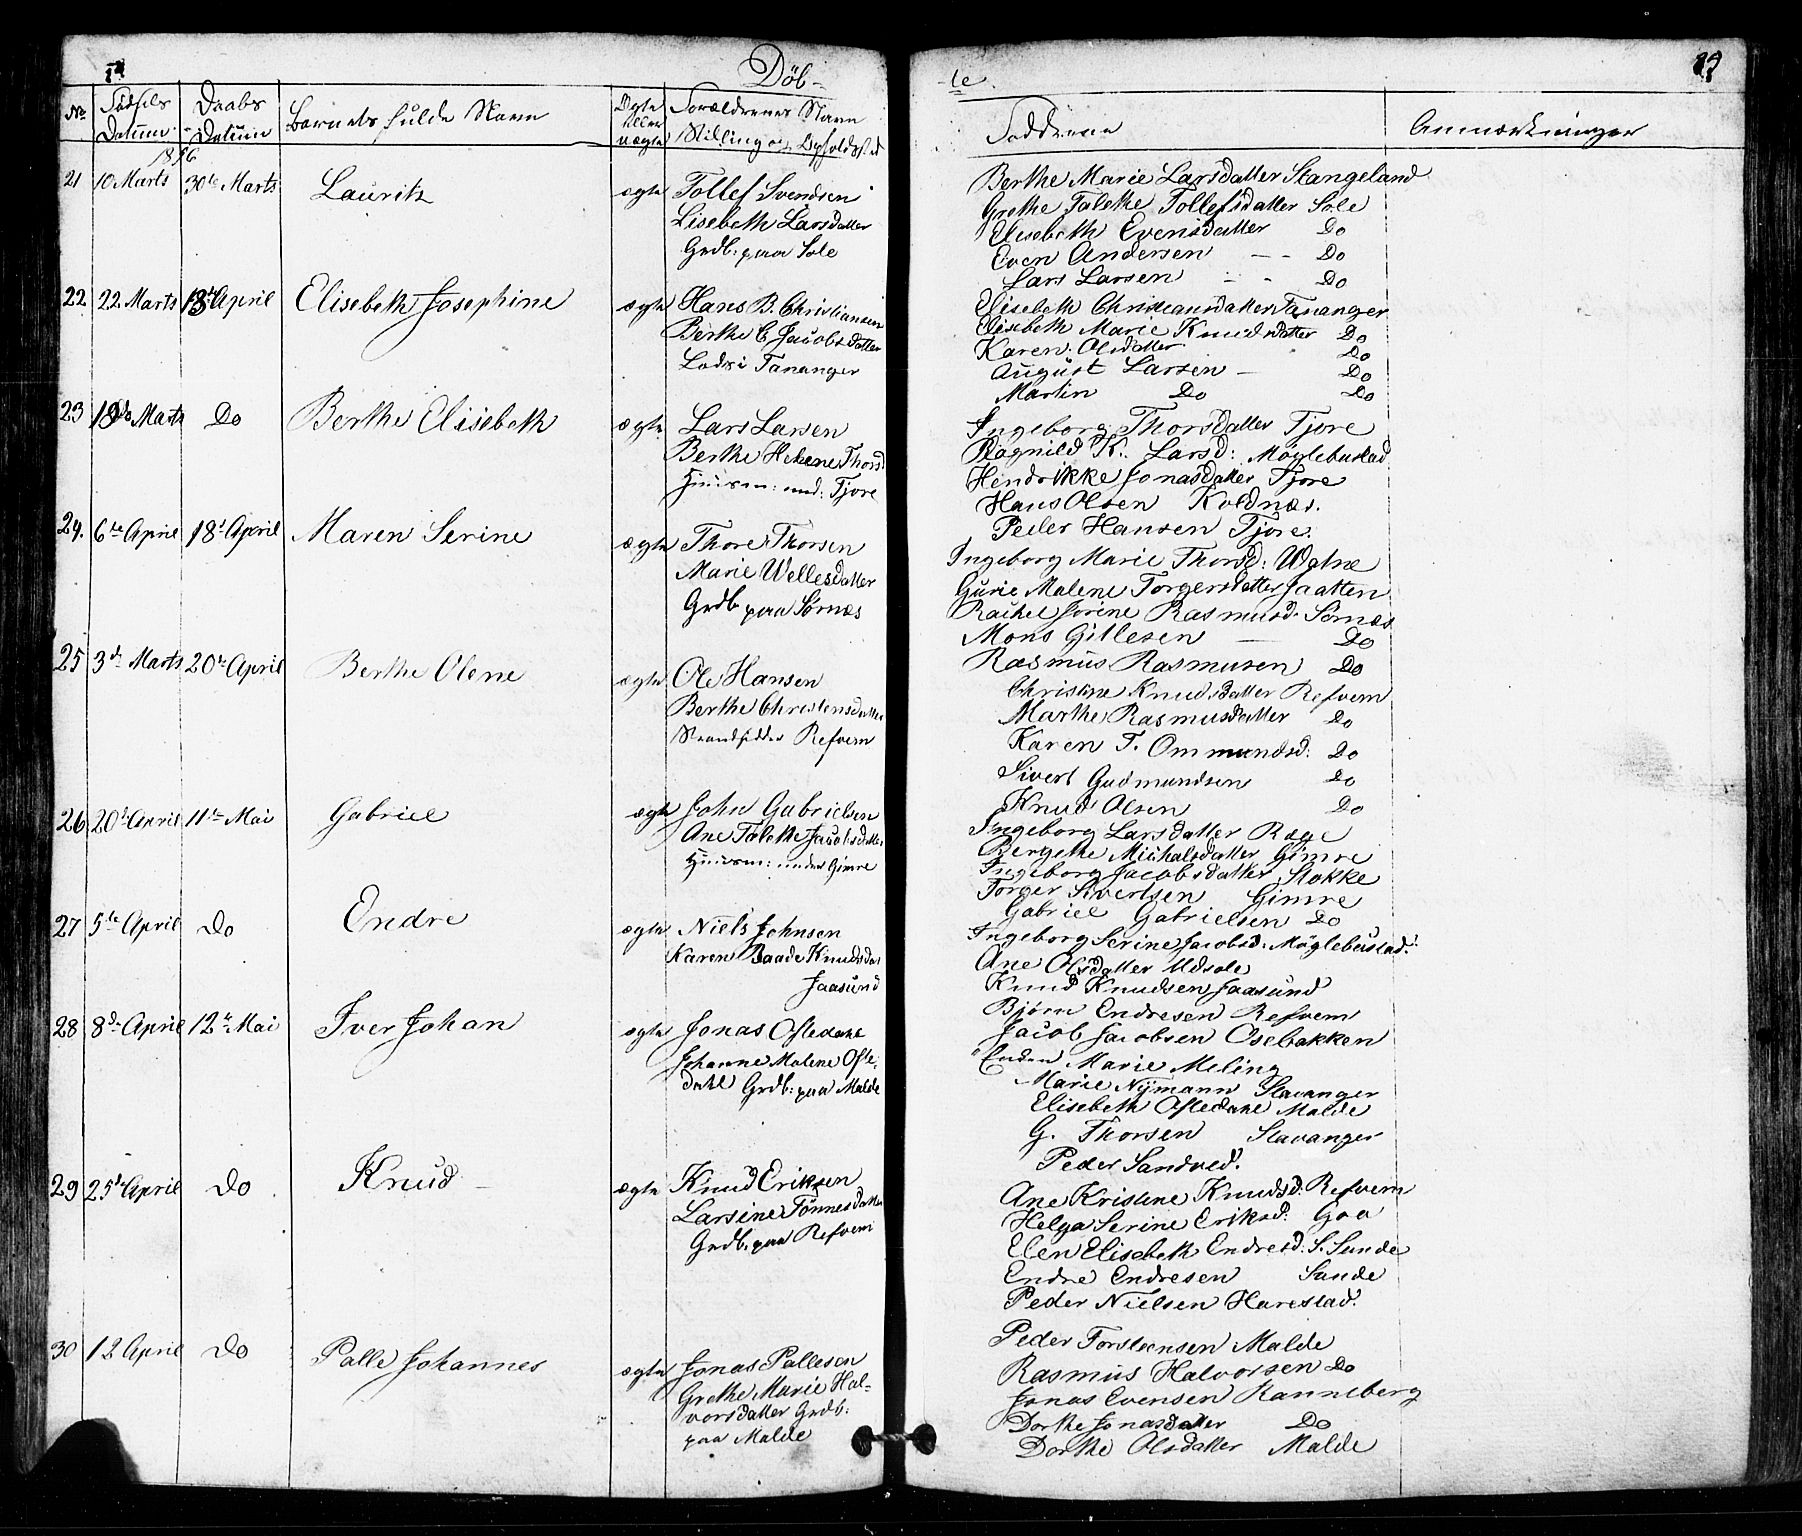 Døb-
No
Fødsels Datum
Daabs Datum
Barnets fulde Navn
Ægte eller uægte
Forældrenes Navn Stilling og Opholdssted
21 10 Marts 30te Marts Lauritz ægte Tollef Svendsen
Lisebeth Larsdatter
Grdb. paa Sole
22 22 Marts April Elisebeth Josephine ægte Hans B. Christiansen
Berthe C Jacobsdatter
Lods i Tananger
23 Marts Do Berthe Elisebeth ægte Lars Larsen
Berthe Helene Thorsd
Huusm: und: Tjore
24. 6te April 18d April Maren Serine ægte Thore Thorsen
Marie Wellesdatter
Grdb paa Sømæs
25 3d Marts 20de April Berthe Olene ægte Ole Hansen
Berthe Christensdatter
Strandsidder Refvem
26 20d April 11te Mai Gabriel ægte John Gabrielsen
Ane Talethe Jacobsdatter
Huusm: under Gimre
27 5te April Do Endre ægte Niels Johnsen
Karen Baade Knudsdat
Jaasund
28 8de April 12te Mai Iver Johan ægte Jonas Oftedahl
Johanne Malene Ofte-
dahl Grdb: paa Malde
29 25d April Do Knud ægte Knud Eriksen
Larsine Tønnesdatter
Grdb. paa Refvem
30 12 April Do Palle Johannes ægte Jonas Pallesen
Grethe Marie Hal-
vorsdatter Grdb:
paa Malde
te.
Fadderne
Anmærkninger
Berthe Marie Larsdatter Stangeland
Grethe Talethe Tollefsdatter Sole
Elisebeth Evensdatter Do
Even Andersen - - Do
Lars Larsen - - Do
Elisebeth Christiansdatter Tananger
Elisebeth Marie Knudsdatter Do
Karen Olsdatter Do
August Larsen - Do
Martin Do Do
Ingeborg Thorsdatter Tjore
Ragnild K. Larsd: Møglebustad
Hendrikke Jonasdatter Tjore
Hans Olsen Koldnæs.
Peder Hansen Tjore.
Ingeborg Marie Thorsd: Watne
Gurie Malene Torgersdatter Jaatten
Rachel Serine Rasmusd. Sømæs
Mons Gillesen - Do
Rasmus Rasmusen Do
Christine Knudsdatter Refvem
Marthe Rasmusdatter Do
Karen T. Ommundsd: Do
Sivert Gudmundsen Do
Knud Olsen Do
Ingeborg Larsdatter Ræge
Bergethe Michalsdatter Gimre
Ingeborg Jacobsdatter Stokke
Torger Sivertsen Gimre
Gabriel Gabrielsen Do
Ingeborg Serine Jacobsd: Møglebustad.
Ane Olsdatter Udsole
Knud Knudsen Jaasund
Bjørn Endresen Refvem
Jacob Jacobsen Osebakken
Marie Meling
Marie Nÿmann Stavanger
Elisebeth Oftedahl Malde
G. Thorsen Stavanger
Peder Sandved.
Ane Kristine Knudsd: Refvem
Helga Serine Eriksd: Goa
Elen Elisebeth Endresd: S. Sunde
Endre Endresen Sunde
Peder Nielsen Harestad.
Peder Torstensen Malde
Rasmus Halvorsen Do
Jonas Evensen Ranneberg
Dorthe Jonasdatter Do
Dorthe Olsdatter Malde